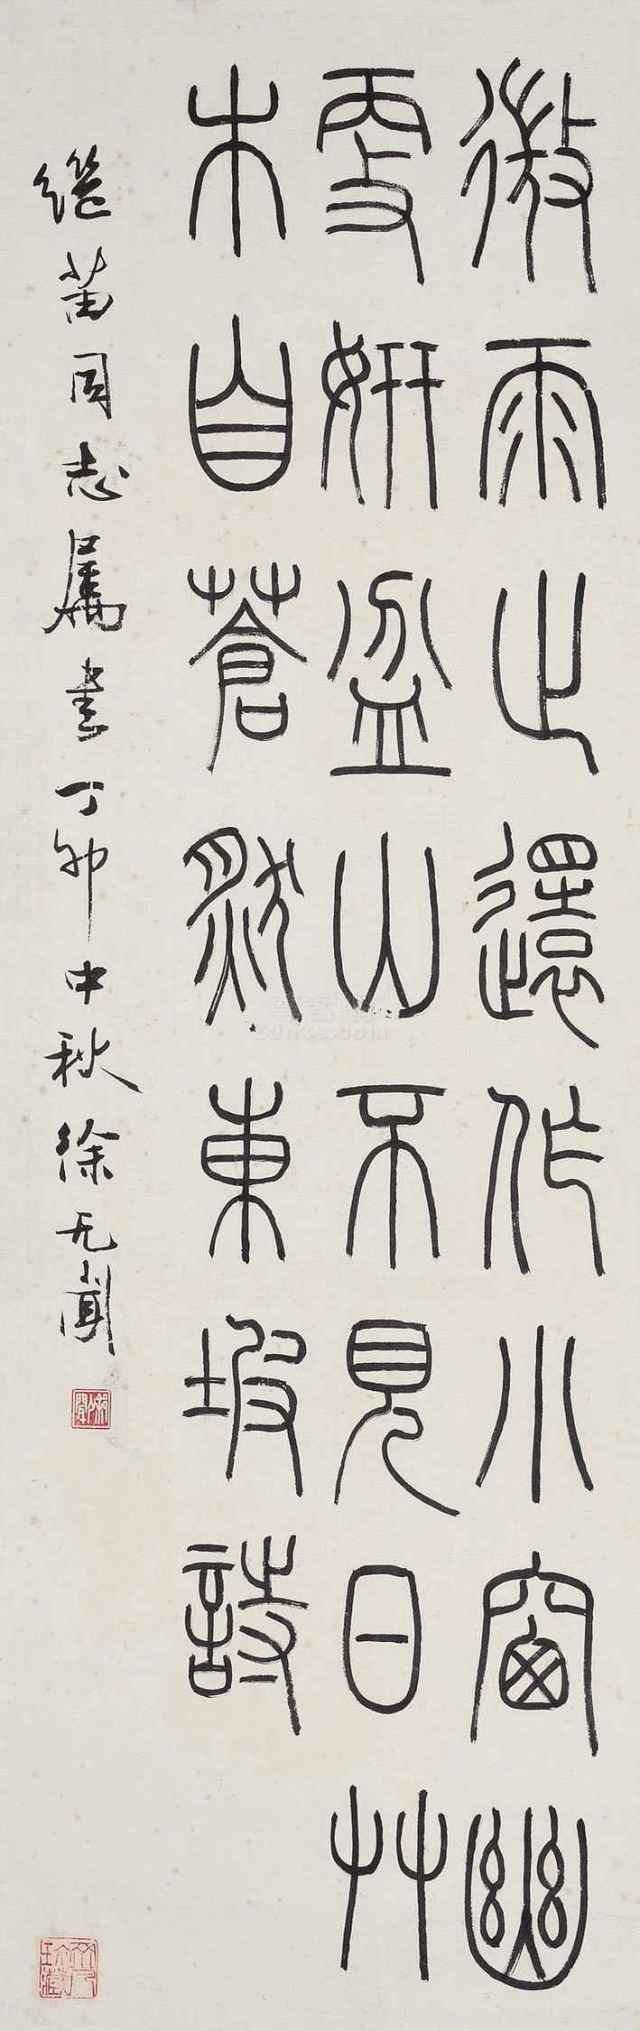 微雨止還作小窗幽
更妍盆山不見日艸
木自蒼然東坡詩
继苗同志属書丁卯中秋徐无聞